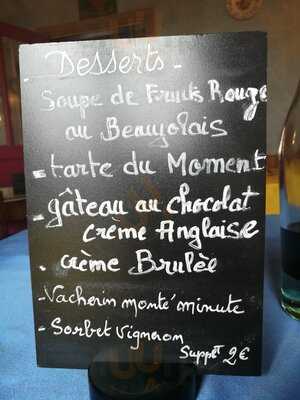 Desserts -
Soupe de Fruits Rouge
au Beaujolais
- tarte du Moment
- gâteau au chocolat
crème Anglaise
. crème Brulèe
- Vacherin monté minute
- Sorbet Vigneron
Suppt 2€